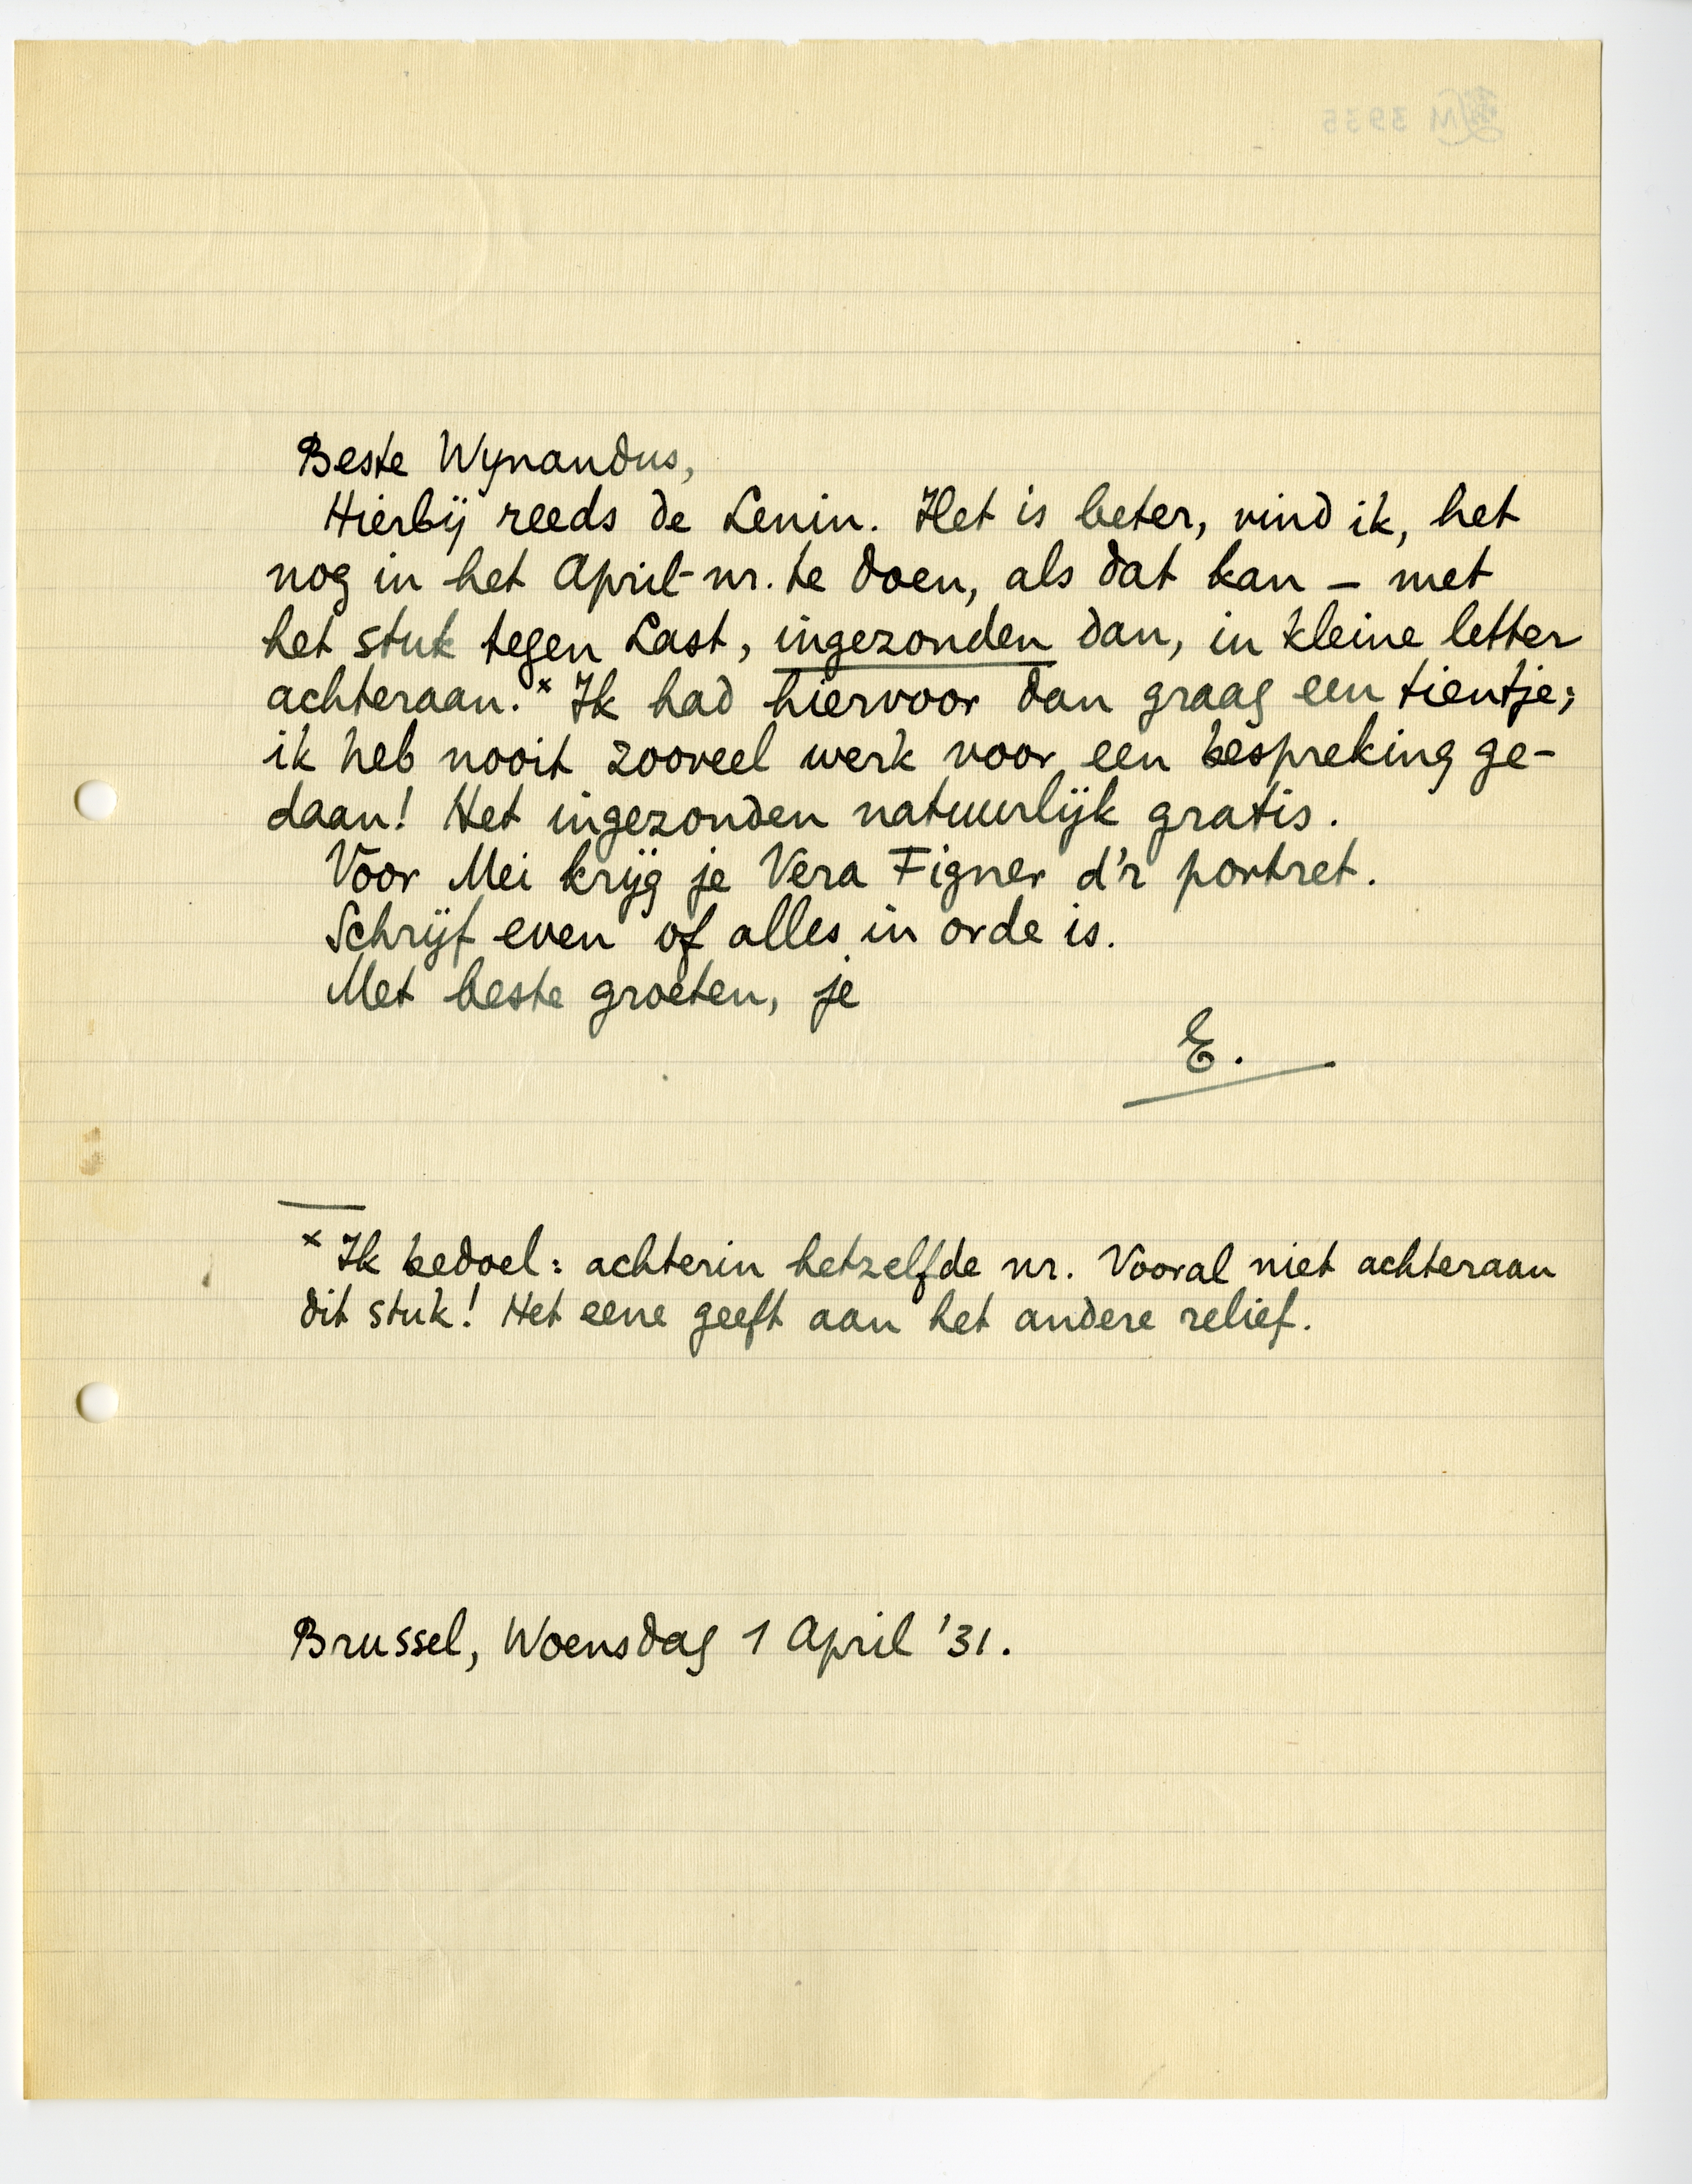 Beste Wynandus,
Hierbij reeds de Lenin. Het is beter, vind ik, het
nog in het April-nr. te doen, als dat kan – met
het stuk tegen Last, ingezonden dan, in kleine letter
achteraan.* Ik had hiervoor dan graag een tientje;
ik heb nooit zooveel werk voor een bespreking ge-
daan! Het ingezonden natuurlijk gratis.
Voor Mei krijg je Vera Figner d'r portret.
Schrijf even of alles in orde is.
Met beste groeten, je
E.
* Ik bedoel: achterin hetzelfde nr. Vooral niet achteraan
dit stuk! Het eene geeft aan het andere relief.
Brussel, Woensdag 1 April '31.